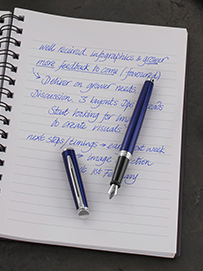 well received infographics & grower
more feedback to come (favoured)
↳ Deliver on grower needs.
Discussion, 3 layouts
Start looking for
to create visuals
next steps/timings → week
→ image
1st February